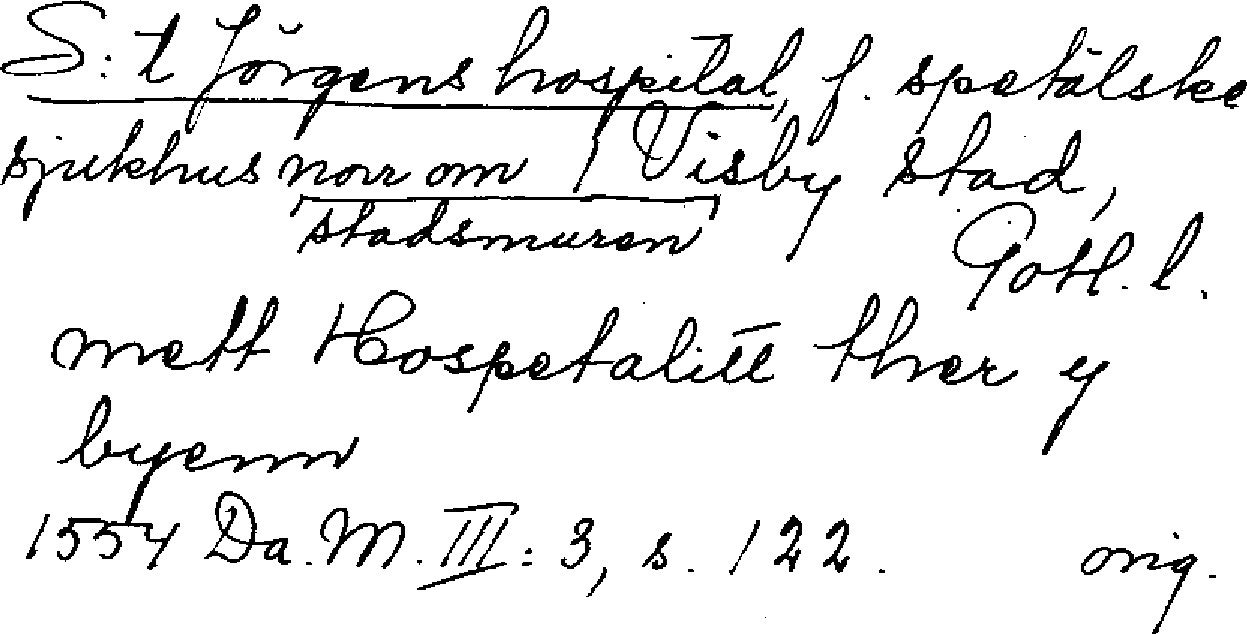 S:t Jörgens hospital, f. spetälske
sjukhus norr om / Visby stad,
stadsmuren
Gotl. l.
mett Hospetalitt ther y
byenn
1554 Da. M. III: 3, s. 122. orig.